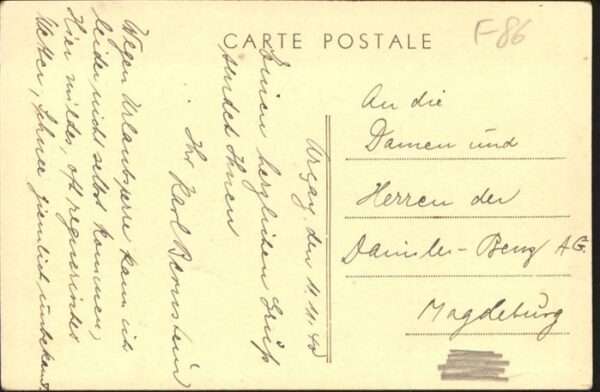 CARTE POSTALE
F-86
den 11.11.40
Einen herzlichen Gruß
sendet Ihnen
Ihr Karl Bernstein
Wegen Urlaubsperre kann ich
leider nicht selbst kommen,
Hier mildes, oft regnerisches
Wetter, Schnee ziemlich unbekannt.
An die
Damen und
Herren der
Daimler-Benz AG.
Magdeburg